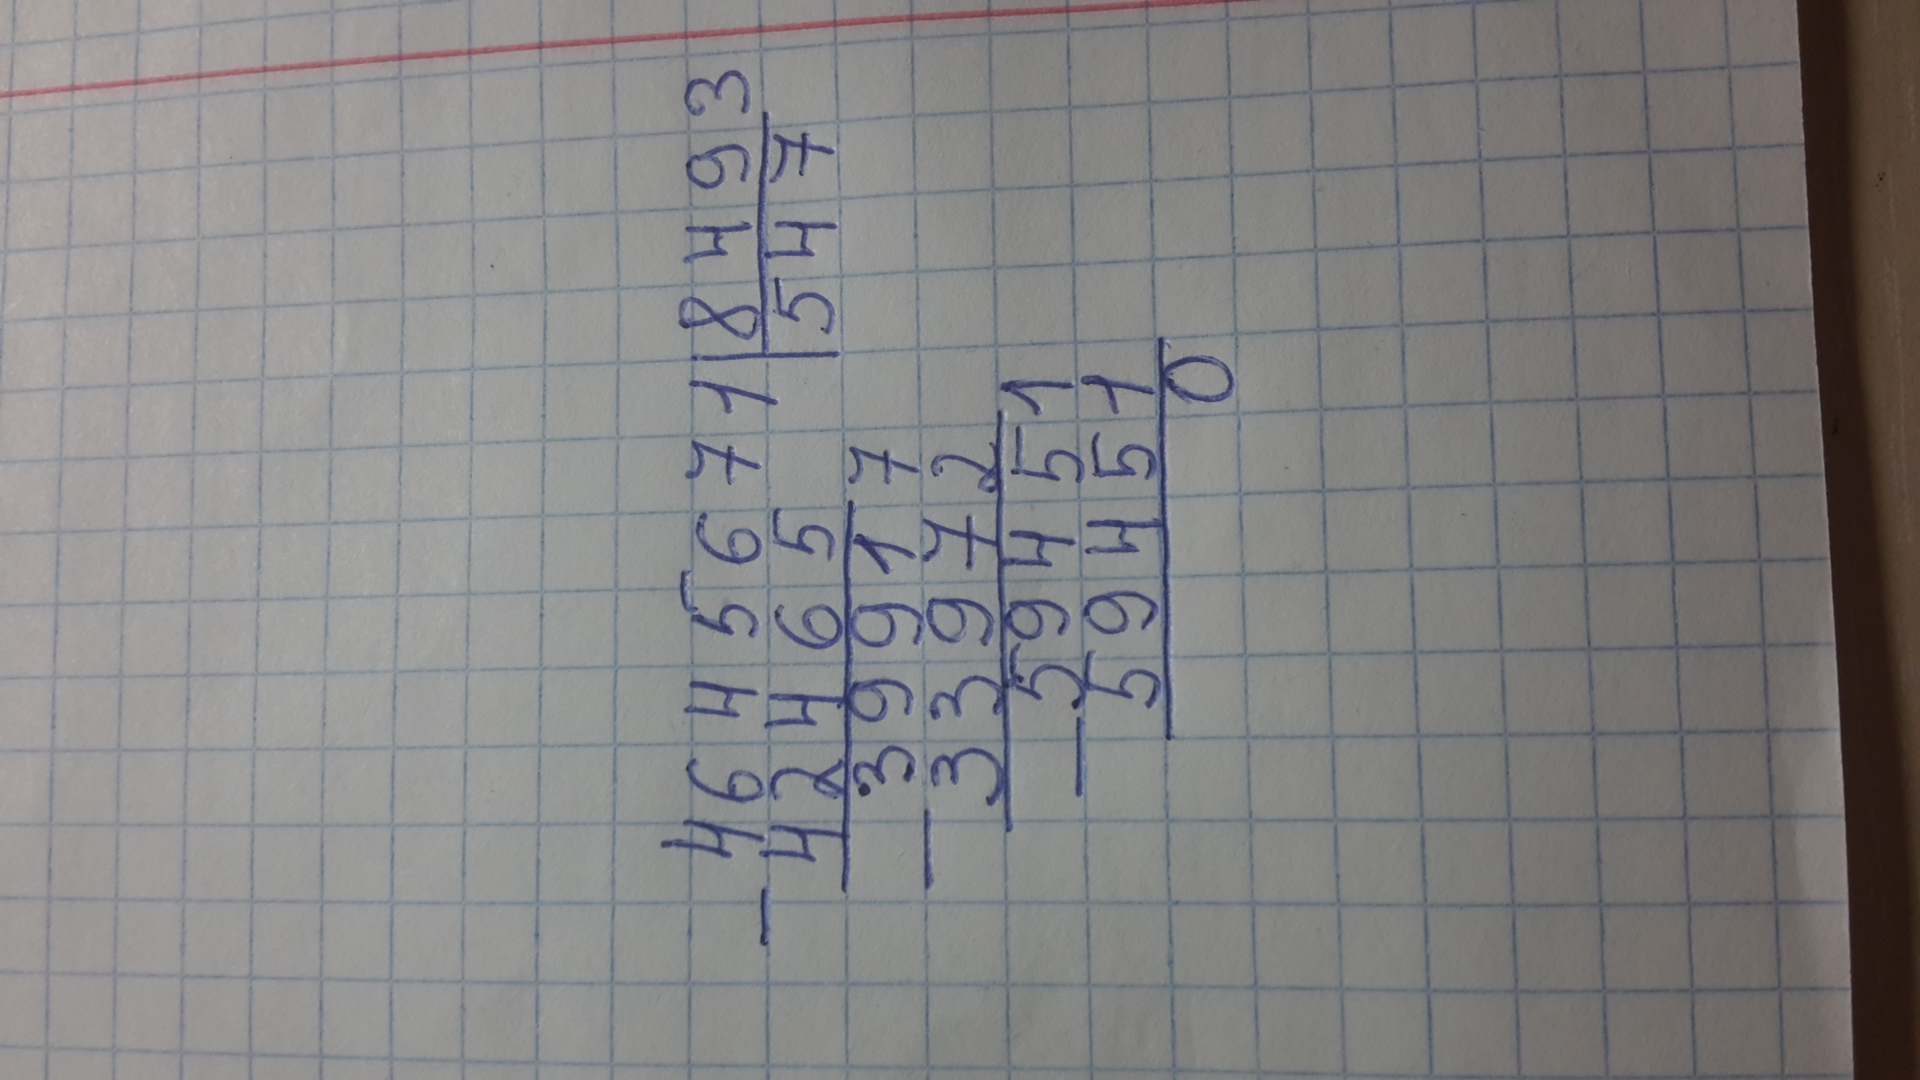 4645671 | 8493
- 42465 | 547
39917
- 33972
59451
- 59451
0